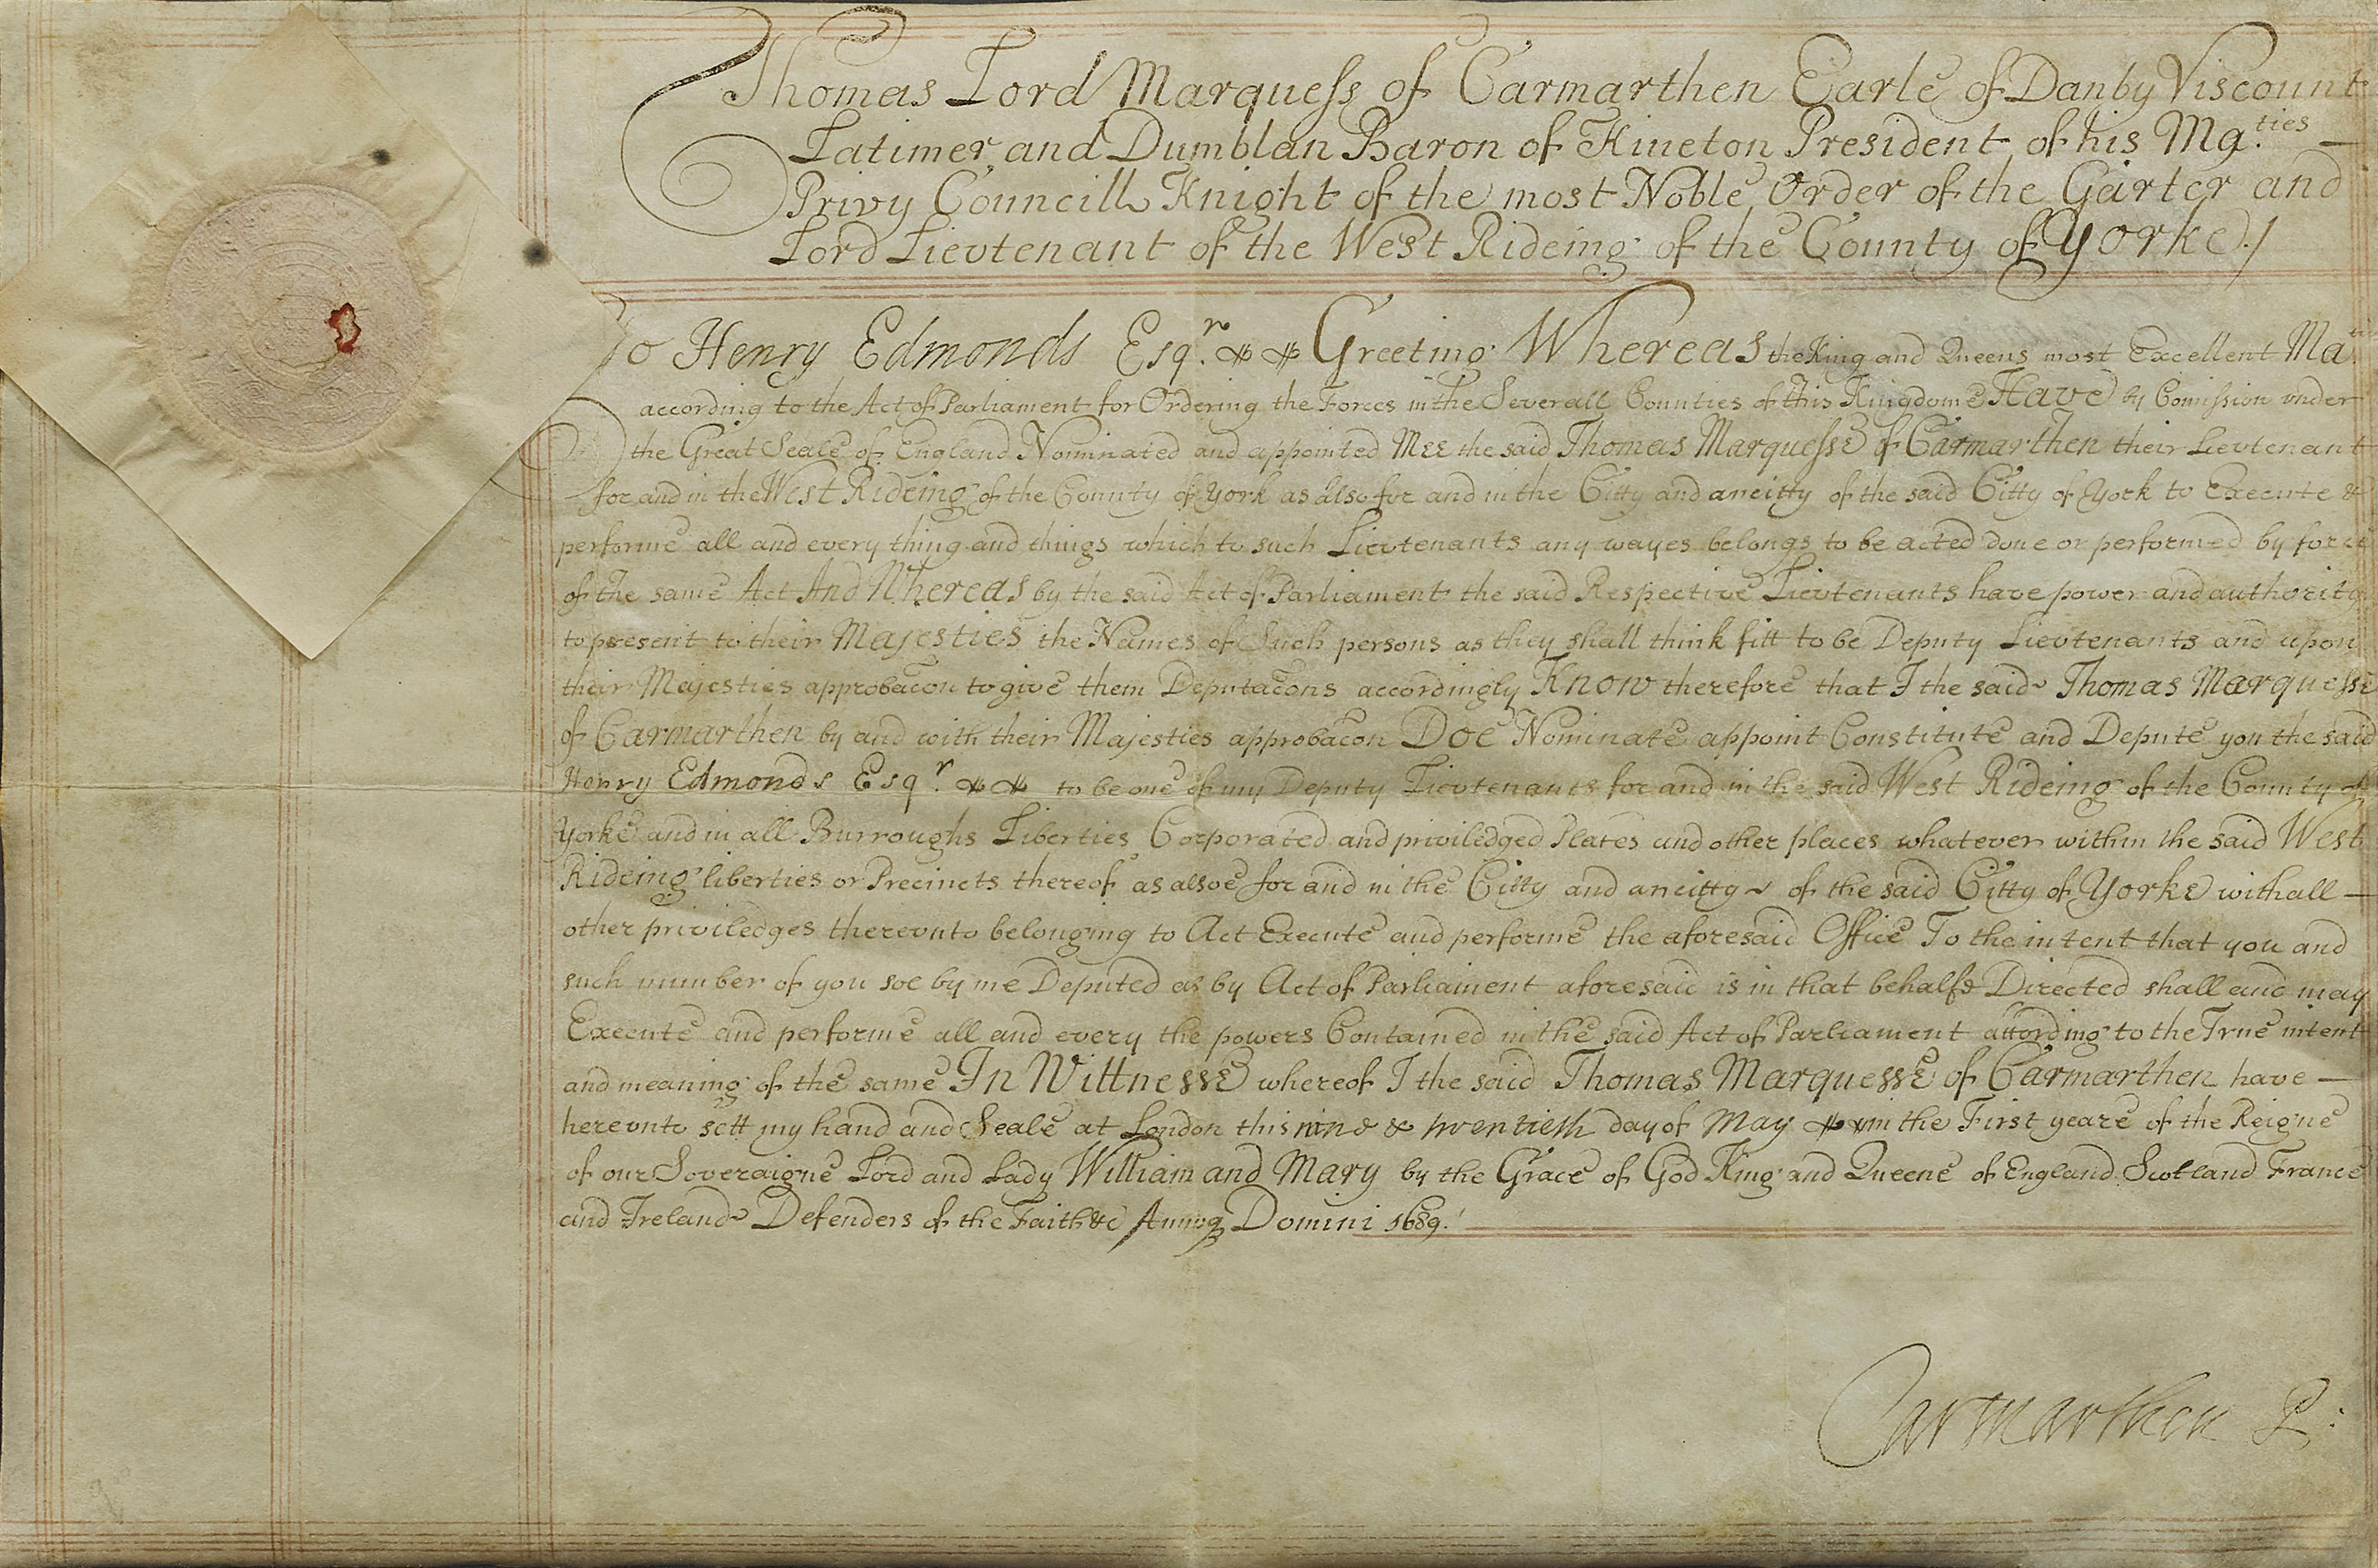 Thomas Lord Marquess of Carmarthen Earle of Danby Viscount
Latimer and Dumblan Baron of Kiueton President of his Ma.ties
Privy Councill Knight of the most Noble Order of the Garter and
Lord Lievtenant of the West Rideing of the County of Yorke ./
To Henry Edmonds Esq.r Greeting Whereas the King and Queens most Excellent Ma.ties
according to the Act of Parliament for Ordering the Forces in the Severall Counties of this Kingdome Have by Comission vnder
the Great Seale of England Nominated and appointed Mee the said Thomas Marquesse of Carmarthen their Lievtenant
for and in the West Rideing of the County of York as also for and in the Citty and ancitty of the said Citty of York to Execute &
performe all and every thing and things which to such Lievtenants any wayes belongs to be acted done or performed by force
of the same Act And Whereas by the said Act of Parliament the said Respective Lievtenants have power and authority
to present to their Majesties the Names of Such persons as they shall think fitt to be Deputy Lievtenants and upon
their Majesties approbacon to give them Deputacons accordingly Know therefore that I the said Thomas Marquesse
of Carmarthen by and with their Majesties approbacon Doe Nominate appoint Constitute and Depute you the said
Henry Edmonds Esq.r to be one of my Deputy Lievtenants for and in the said West Rideing of the County of
Yorke and in all Burroughs Liberties Corporated and priviledged Places and other places whatever within the said West
Rideing liberties or Precincts thereof as alsoe for and in the Citty and ancitty of the said Citty of Yorke with all —
other priviledges therevnto belonging to Act Execute and performe the aforesaid Office To the intent that you and
such number of you soe by me Deputed as by Act of Parliament aforesaid is in that behalfe Directed shall and may
Execute and performe all and every the powers Contained in the said Act of Parliament according to the True intent
and meaning of the same In Wittnesse whereof I the said Thomas Marquesse of Carmarthen have —
herevnto sett my hand and Seale at London this nine & twentieth day of May in the First yeare of the Reigne
of our Soveraigne Lord and Lady William and Mary by the Grace of God King and Queene of England Scotland France
and Ireland Defenders of the Faith &c Annoq Domini 1689.
Carmarthen P: